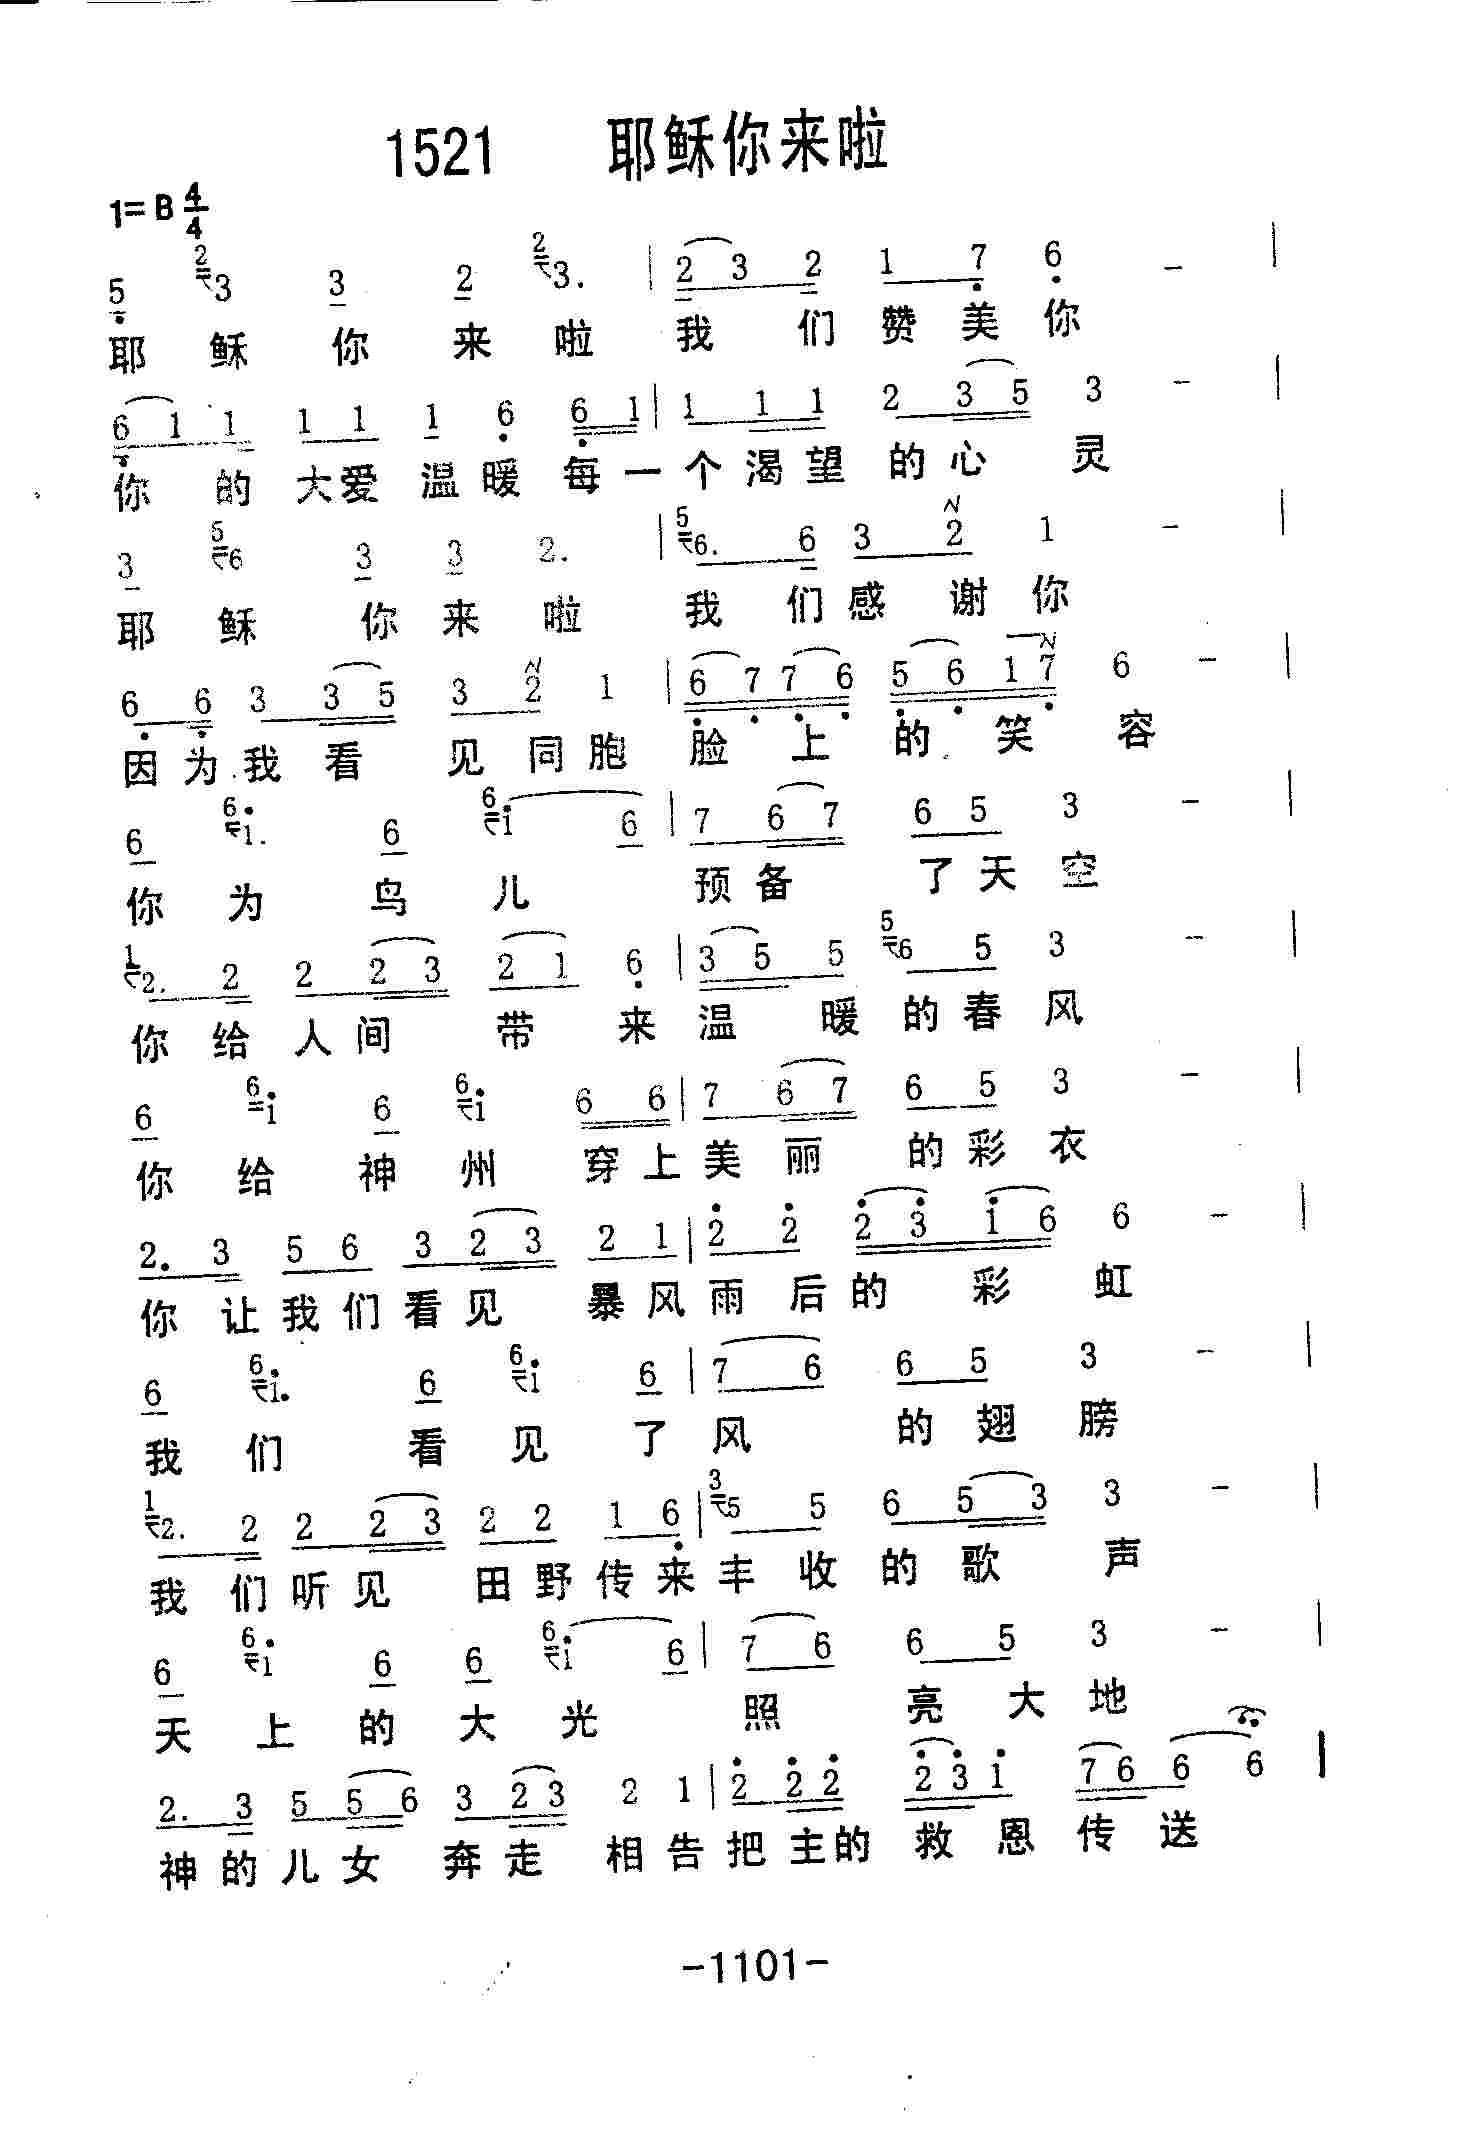 1521 耶稣你来啦
1=B 4/4
5 2 3 3 2 2 3. | 2 3 2 1 7 6 - |
耶 稣 你 来 啦 我 们 赞 美 你
6 1 1 1 1 1 6 6 1 | 1 1 1 2 3 5 3 - |
你 的 大 爱 温 暖 每 一 个 渴 望 的 心 灵
3 5 6 3 3 2. | 5 6. 6 3 2 1 - |
耶 稣 你 来 啦 我 们 感 谢 你
6 6 3 3 5 3 2 1 | 6 7 7 6 5 6 1 7 6 - |
因 为 我 看 见 同 胞 脸 上 的 笑 容
6 6 i. 6 6 i 6 | 7 6 7 6 5 3 - |
你 为 鸟 儿 预 备 了 天 空
1 2. 2 2 2 3 2 1 6 | 3 5 5 5 6 5 3 - |
你 给 人 间 带 来 温 暖 的 春 风
6 6 i 6 6 i 6 6 | 7 6 7 6 5 3 - |
你 给 神 州 穿 上 美 丽 的 彩 衣
2. 3 5 6 3 2 3 2 1 | 2 2 2 3 i 6 6 - |
你 让 我 们 看 见 暴 风 雨 后 的 彩 虹
6 6 i. 6 6 i 6 | 7 6 6 5 3 - |
我 们 看 见 了 风 的 翅 膀
1 2. 2 2 2 3 2 2 1 6 | 3 5 5 6 5 3 3 - |
我 们 听 见 田 野 传 来 丰 收 的 歌 声
6 6 i 6 6 6 i 6 | 7 6 6 5 3 - |
天 上 的 大 光 照 亮 大 地
2. 3 5 5 6 3 2 3 2 1 | 2 2 2 2 3 i 7 6 6 6 |
神 的 儿 女 奔 走 相 告 把 主 的 救 恩 传 送
-1101-